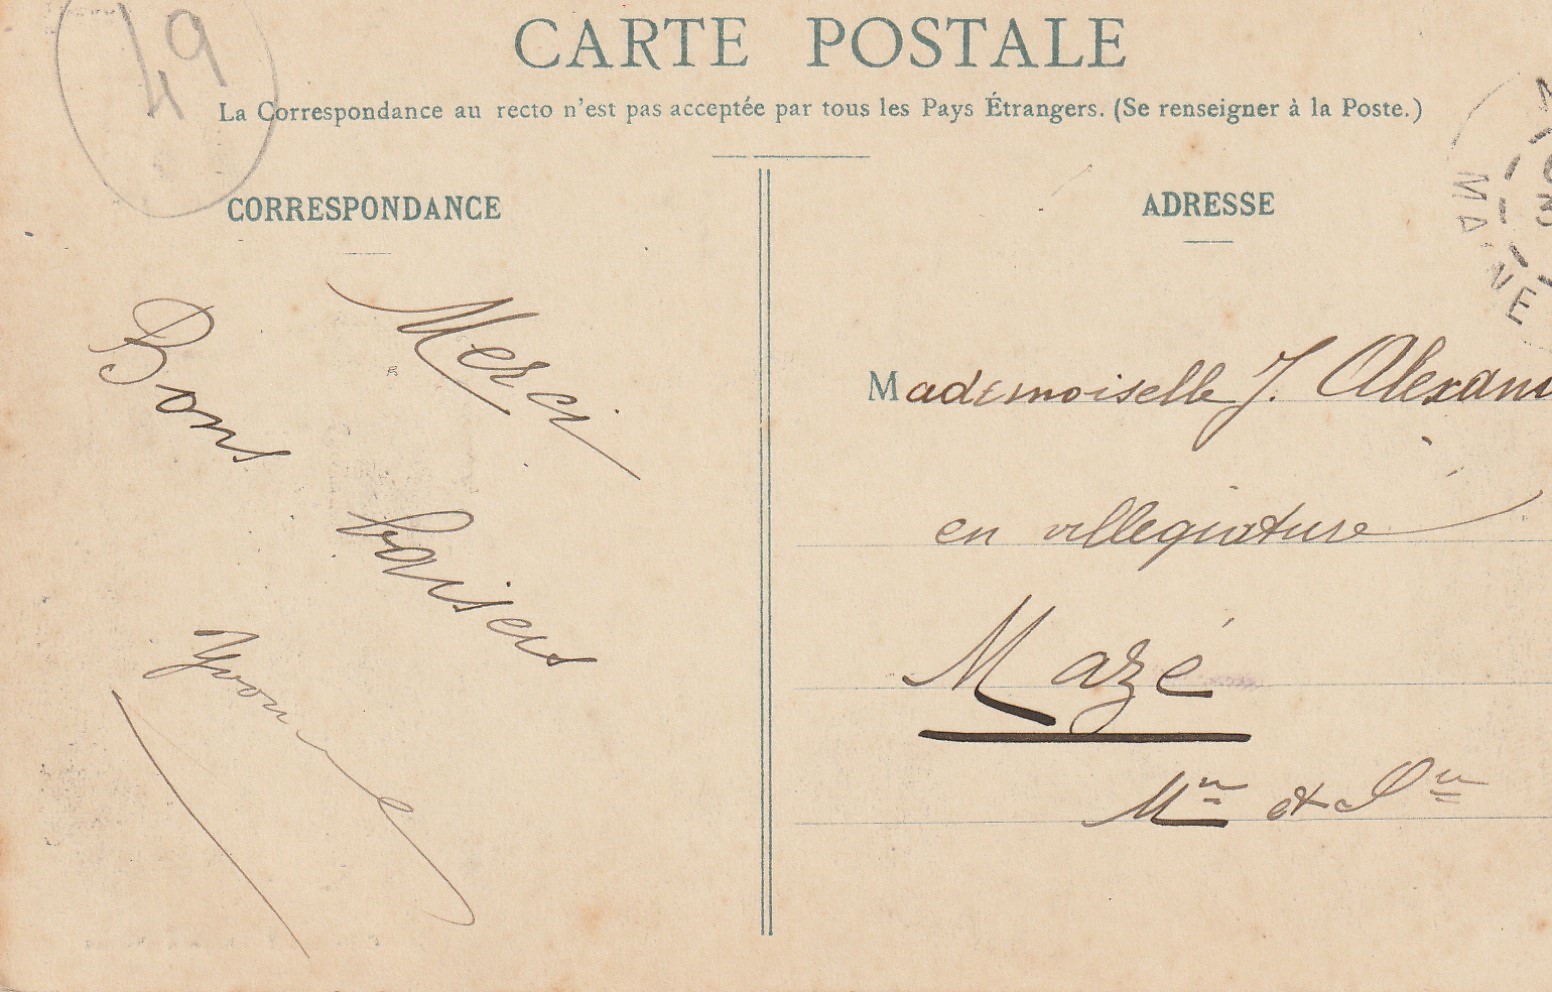 49
CARTE POSTALE
La Correspondance au recto n'est pas acceptée par tous les Pays Étrangers. (Se renseigner à la Poste.)
CORRESPONDANCE
ADRESSE
Merci
Bons baisers
Yvonne
Mademoiselle J. Alexan
en villegiature
Mazé
Mⁿᵉ et Lʳᵉ
MAINE